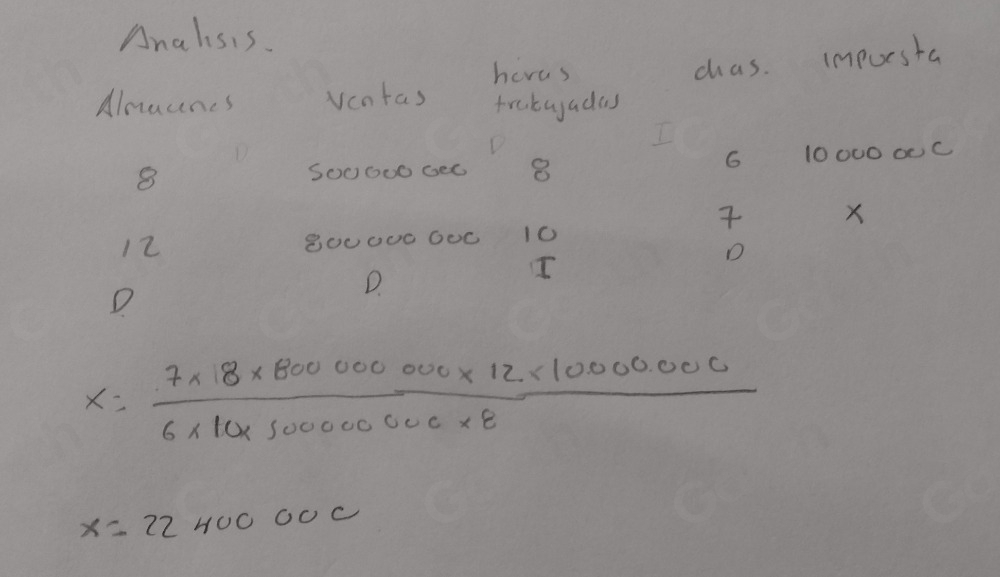 Analisis.
Almacenes ventas horas trabajadas dias. impuesta
D D I
8 500000000 8 6 10000000
12 800000000 10 7 X
D. D. I D
x= 7 x 8 x 800 000 000 x 12 x 10.000.000
6 x 10 x 500000000 x 8
x= 22 400 000